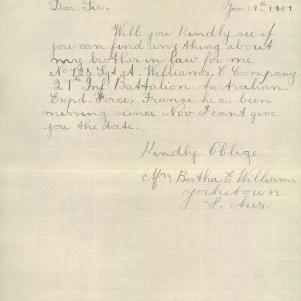 Dear Sir. Jan 29th 1917
Will you kindly see if
you can find any thing about
my brother in law for me
No 725 Sgt A. Williams. E Company
27th Inf Battalion. Australian
Expd. Forces. France he as been
missing since Nov I cant give
you the date.
Kindly Oblige.
Mrs Bertha E Williams
Yorketown
S. Aus.